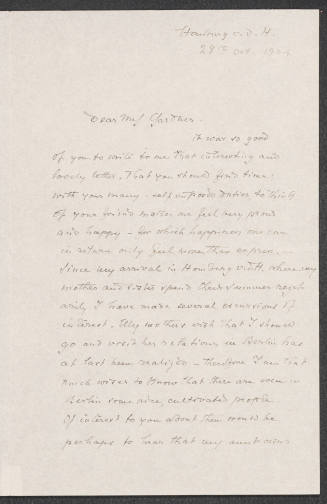 Homburg v. d. H.
29th Oct. 1904
Dear Mrs Gardner.
it was so good
of you to write to me that interesting and
lovely letter. That you should find time
with your many self imposed duties to think
of your friend makes me feel very proud
and happy - for which happiness one can
in return only feel more than express.
Since my arrival in Homburg v.d.H. where my
mother and sister spend their summer
I have made several excursions of
interest. My mothers wish that I should
go and visit her relations in Berlin has
at last been realized - therefore I am that
much wiser to know that there are even in
Berlin some nice, cultivated people.
Of interest to you about them would be
perhaps to hear that my aunt owns